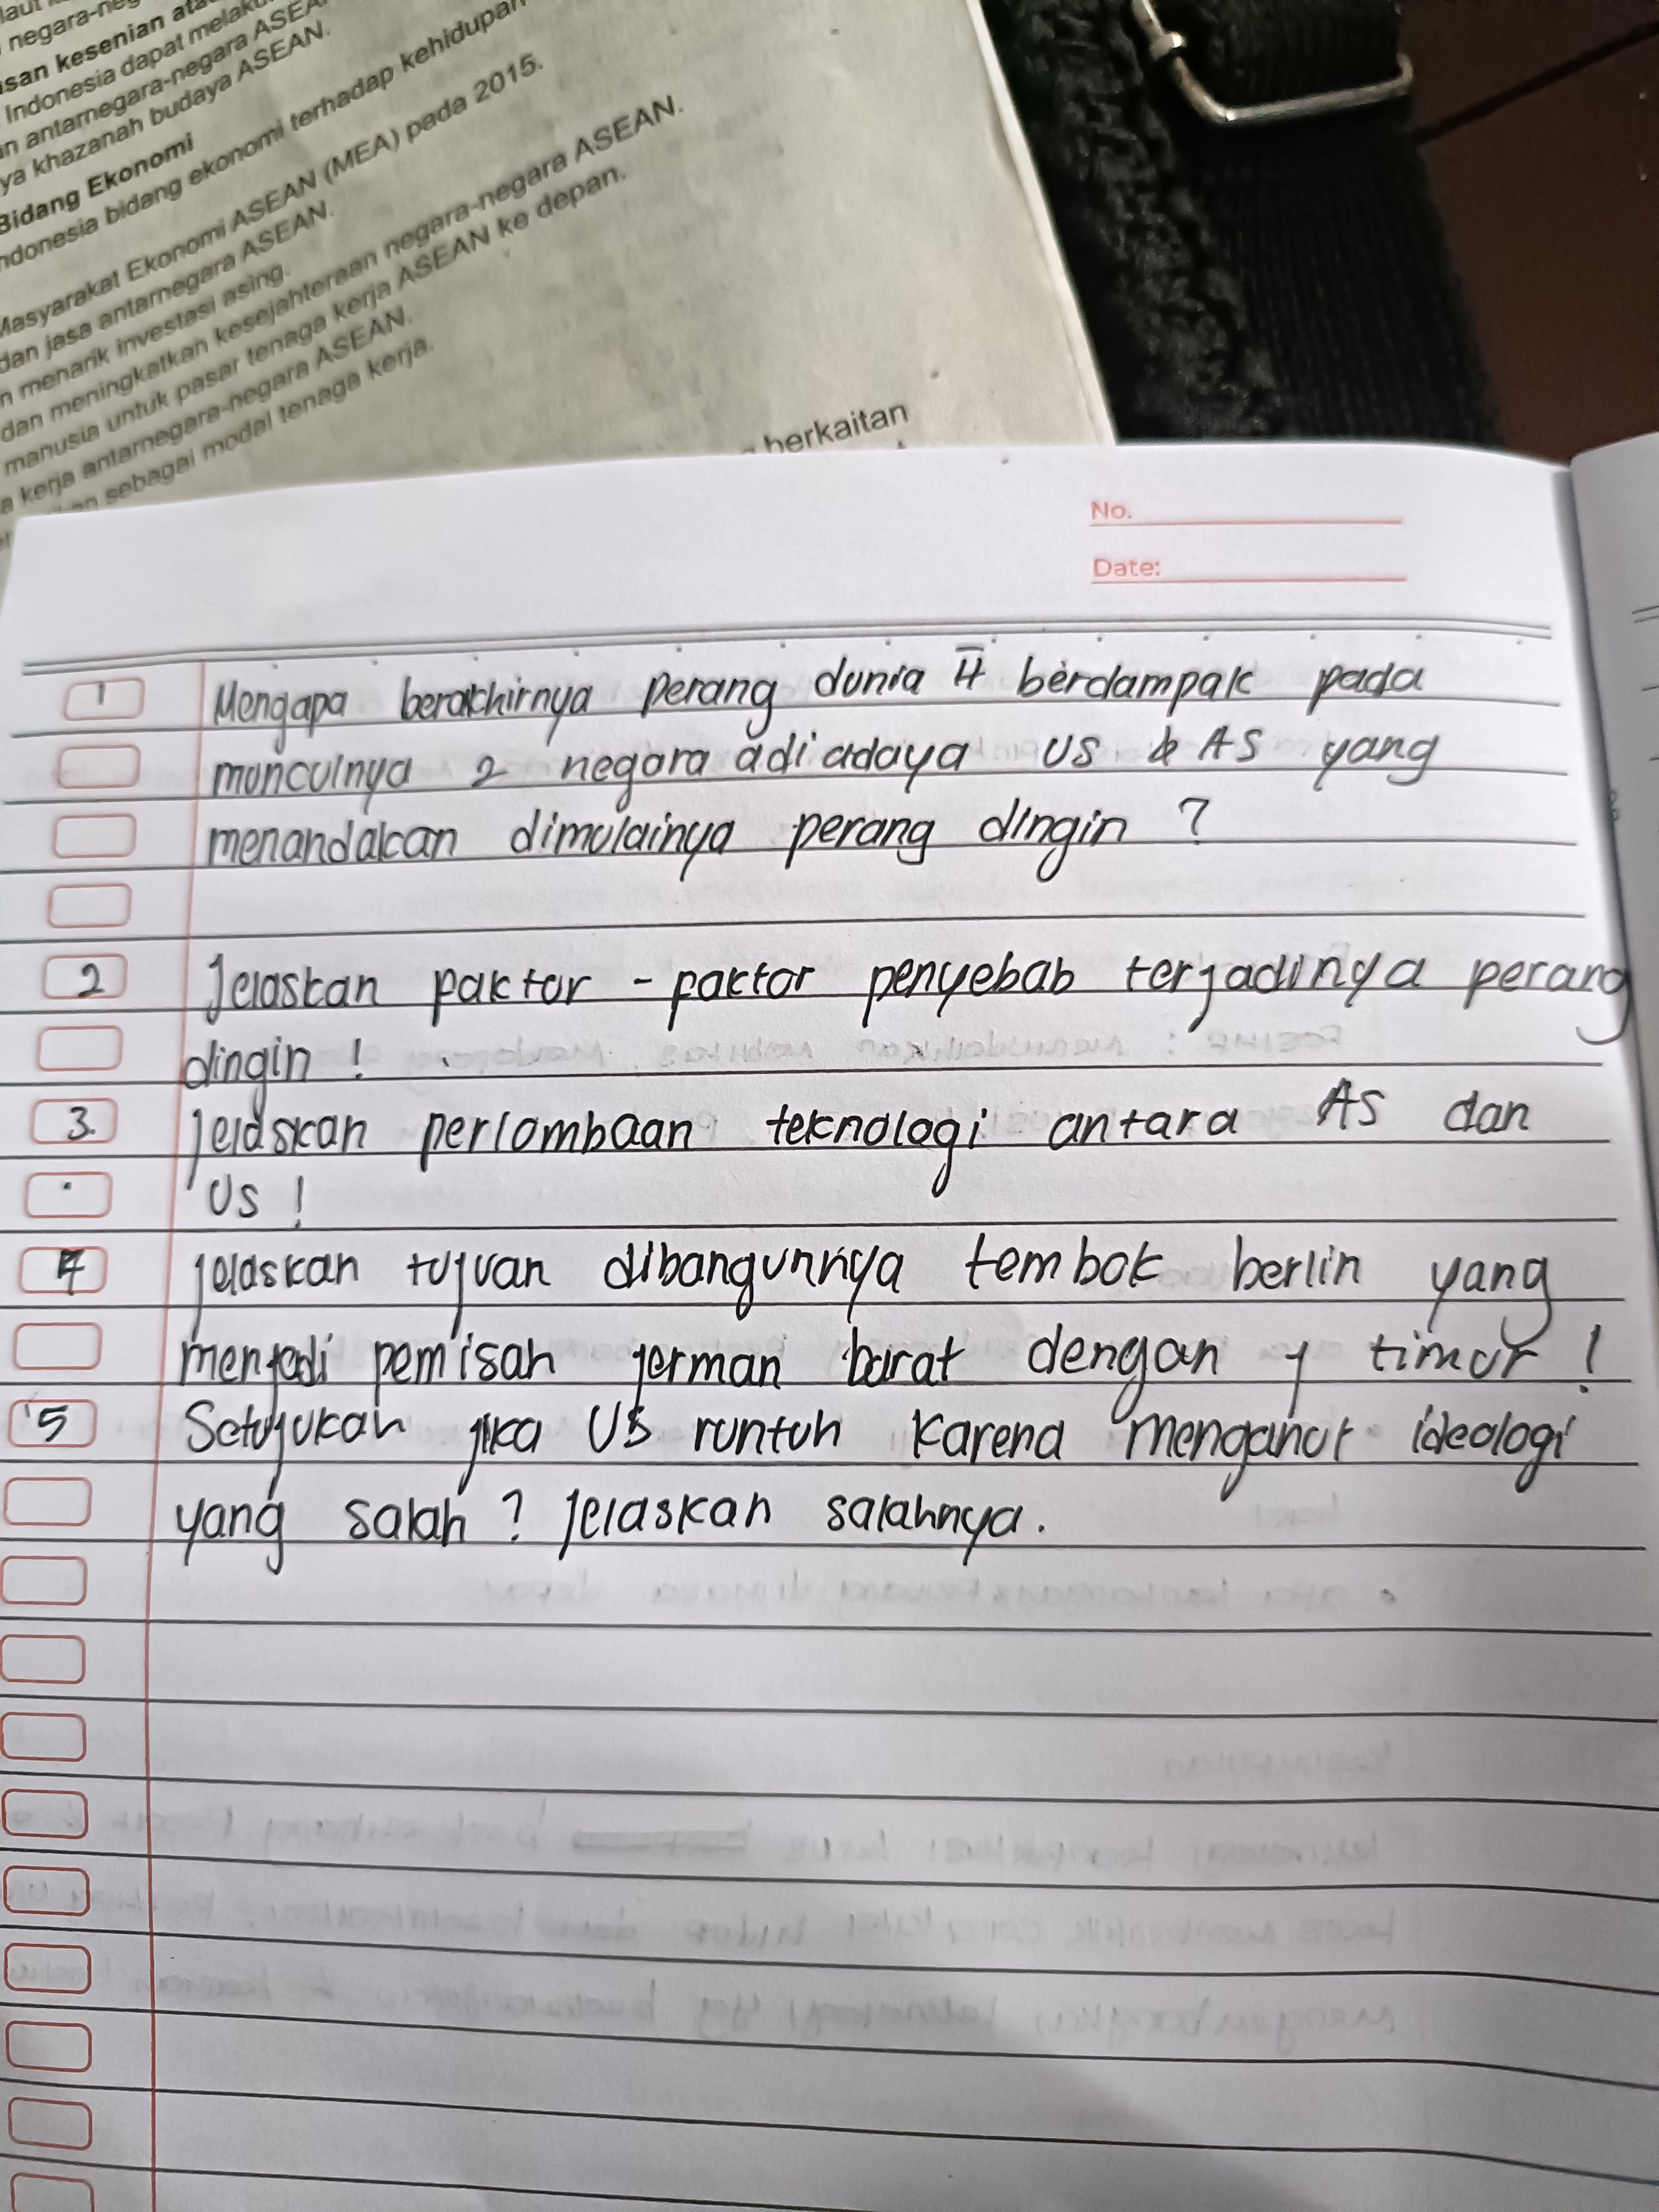 negara-neg
san kesenian ata
Indonesia dapat melaku
n antarnegara-negara ASEA
ya khazanah budaya ASEAN.
Bidang Ekonomi
ndonesia bidang ekonomi terhadap kehidupan
Masyarakat Ekonomi ASEAN (MEA) pada 2015.
dan jasa antarnegara ASEAN.
n menarik investasi asing.
dan meningkatkan kesejahteraan negara-negara ASEAN.
manusia untuk pasar tenaga kerja ASEAN ke depan.
a kerja antarnegara-negara ASEAN.
an sebagai modal tenaga kerja.
berkaitan
No.
Date:
1 Mengapa berakhirnya perang dunia II berdampak pada
munculnya 2 negara adi adaya US & AS yang
menandakan dimulainya perang dingin ?
2 Jelaskan paktor - faktor penyebab terjadinya perang
dingin !
3. jelaskan perlombaan teknologi antara AS dan
US !
4 jelaskan tujuan dibangunnya tembok berlin yang
menjadi pemisah jerman barat dengan j timur !
5 Setujukah jika US runtuh karena menganut ideologi
yang salah ? jelaskan salahnya.